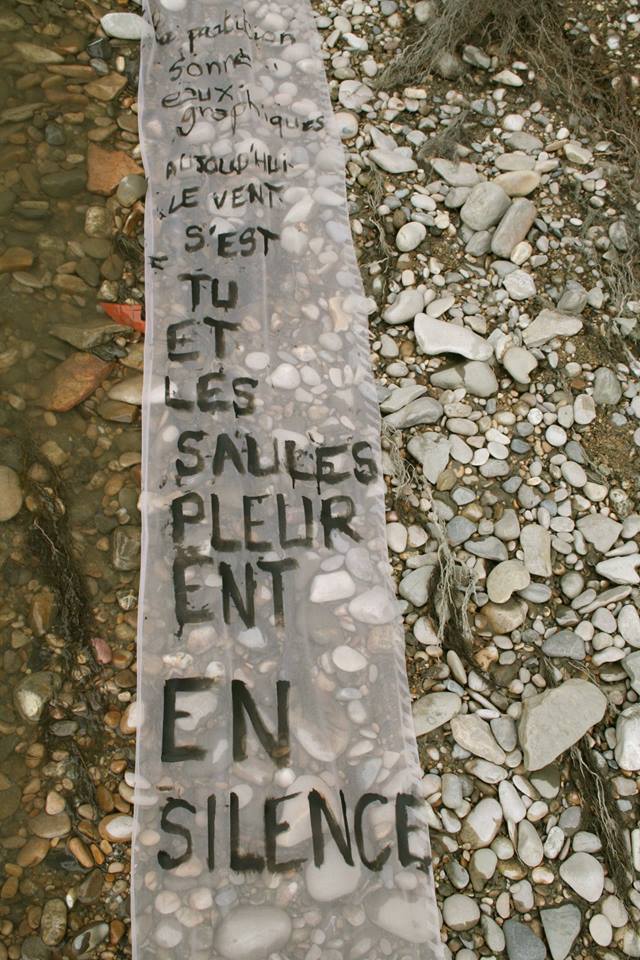 la partition
sonne
eaux.
graphiques
AUJOURD'HUI
LE VENT
S'EST
TU
ET
LES
SAULES
PLEUR
ENT
EN
SILENCE